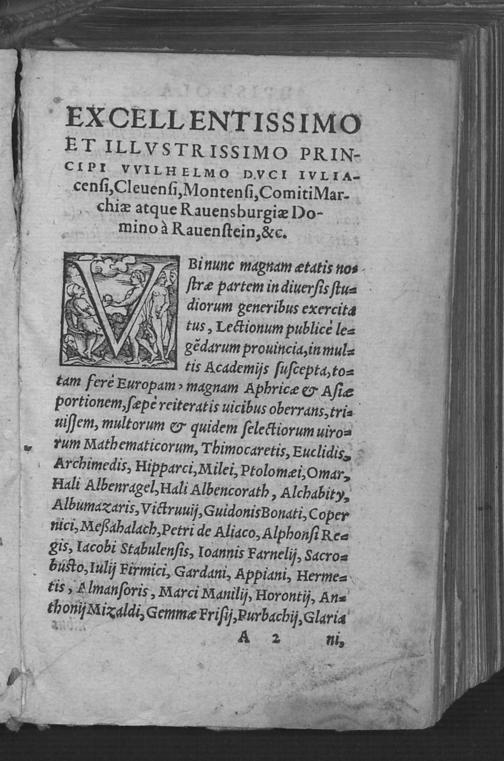 EXCELLENTISSIMO
ET ILLVSTRISSIMO PRIN-
CIPI VVILHELMO DVCI IVLIA-
censi, Cleuensi, Montensi, Comiti Mar-
chiæ atque Rauensburgiæ Do-
mino à Rauenstein, &c.
VBi nunc magnam ætatis no-
stræ partem in diuersis stu-
diorum generibus exercita
tus, Lectionum publicè le-
gẽdarum prouincia, in mul-
tis Academijs suscepta, to-
tam ferè Europam, magnam Aphricæ & Asiæ
portionem, sæpè reiteratis uicibus oberrans, tri-
uissem, multorum & quidem selectiorum uiro-
rum Mathematicorum, Thimocaretis, Euclidis,
Archimedis, Hipparci, Milei, Ptolomæi, Omar,
Hali Albenragel, Hali Albencorath, Alchabity,
Albumazaris, Victruuij, Guidonis Bonati, Coper
nici, Meßahalach, Petri de Aliaco, Alphonsi Re-
gis, Iacobi Stabulensis, Ioannis Farnelij, Sacro-
busto, Iulij Firmici, Gardani, Appiani, Herme-
tis, Almansoris, Marci Manilij, Horontij, An-
thonij Mizaldi, Gemmæ Frisij, Purbachij, Glaria
A 2 ni,